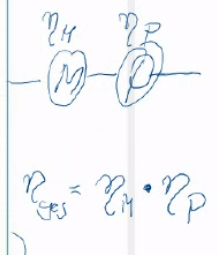 η_M η_P
M P
η_ges = η_M · η_P